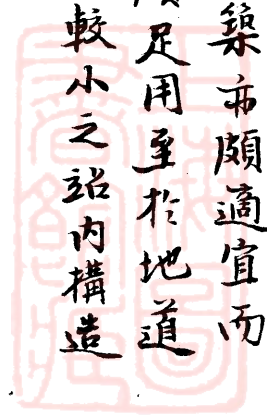 築亦頗適宜而
足用至於地道
較小之站内構造